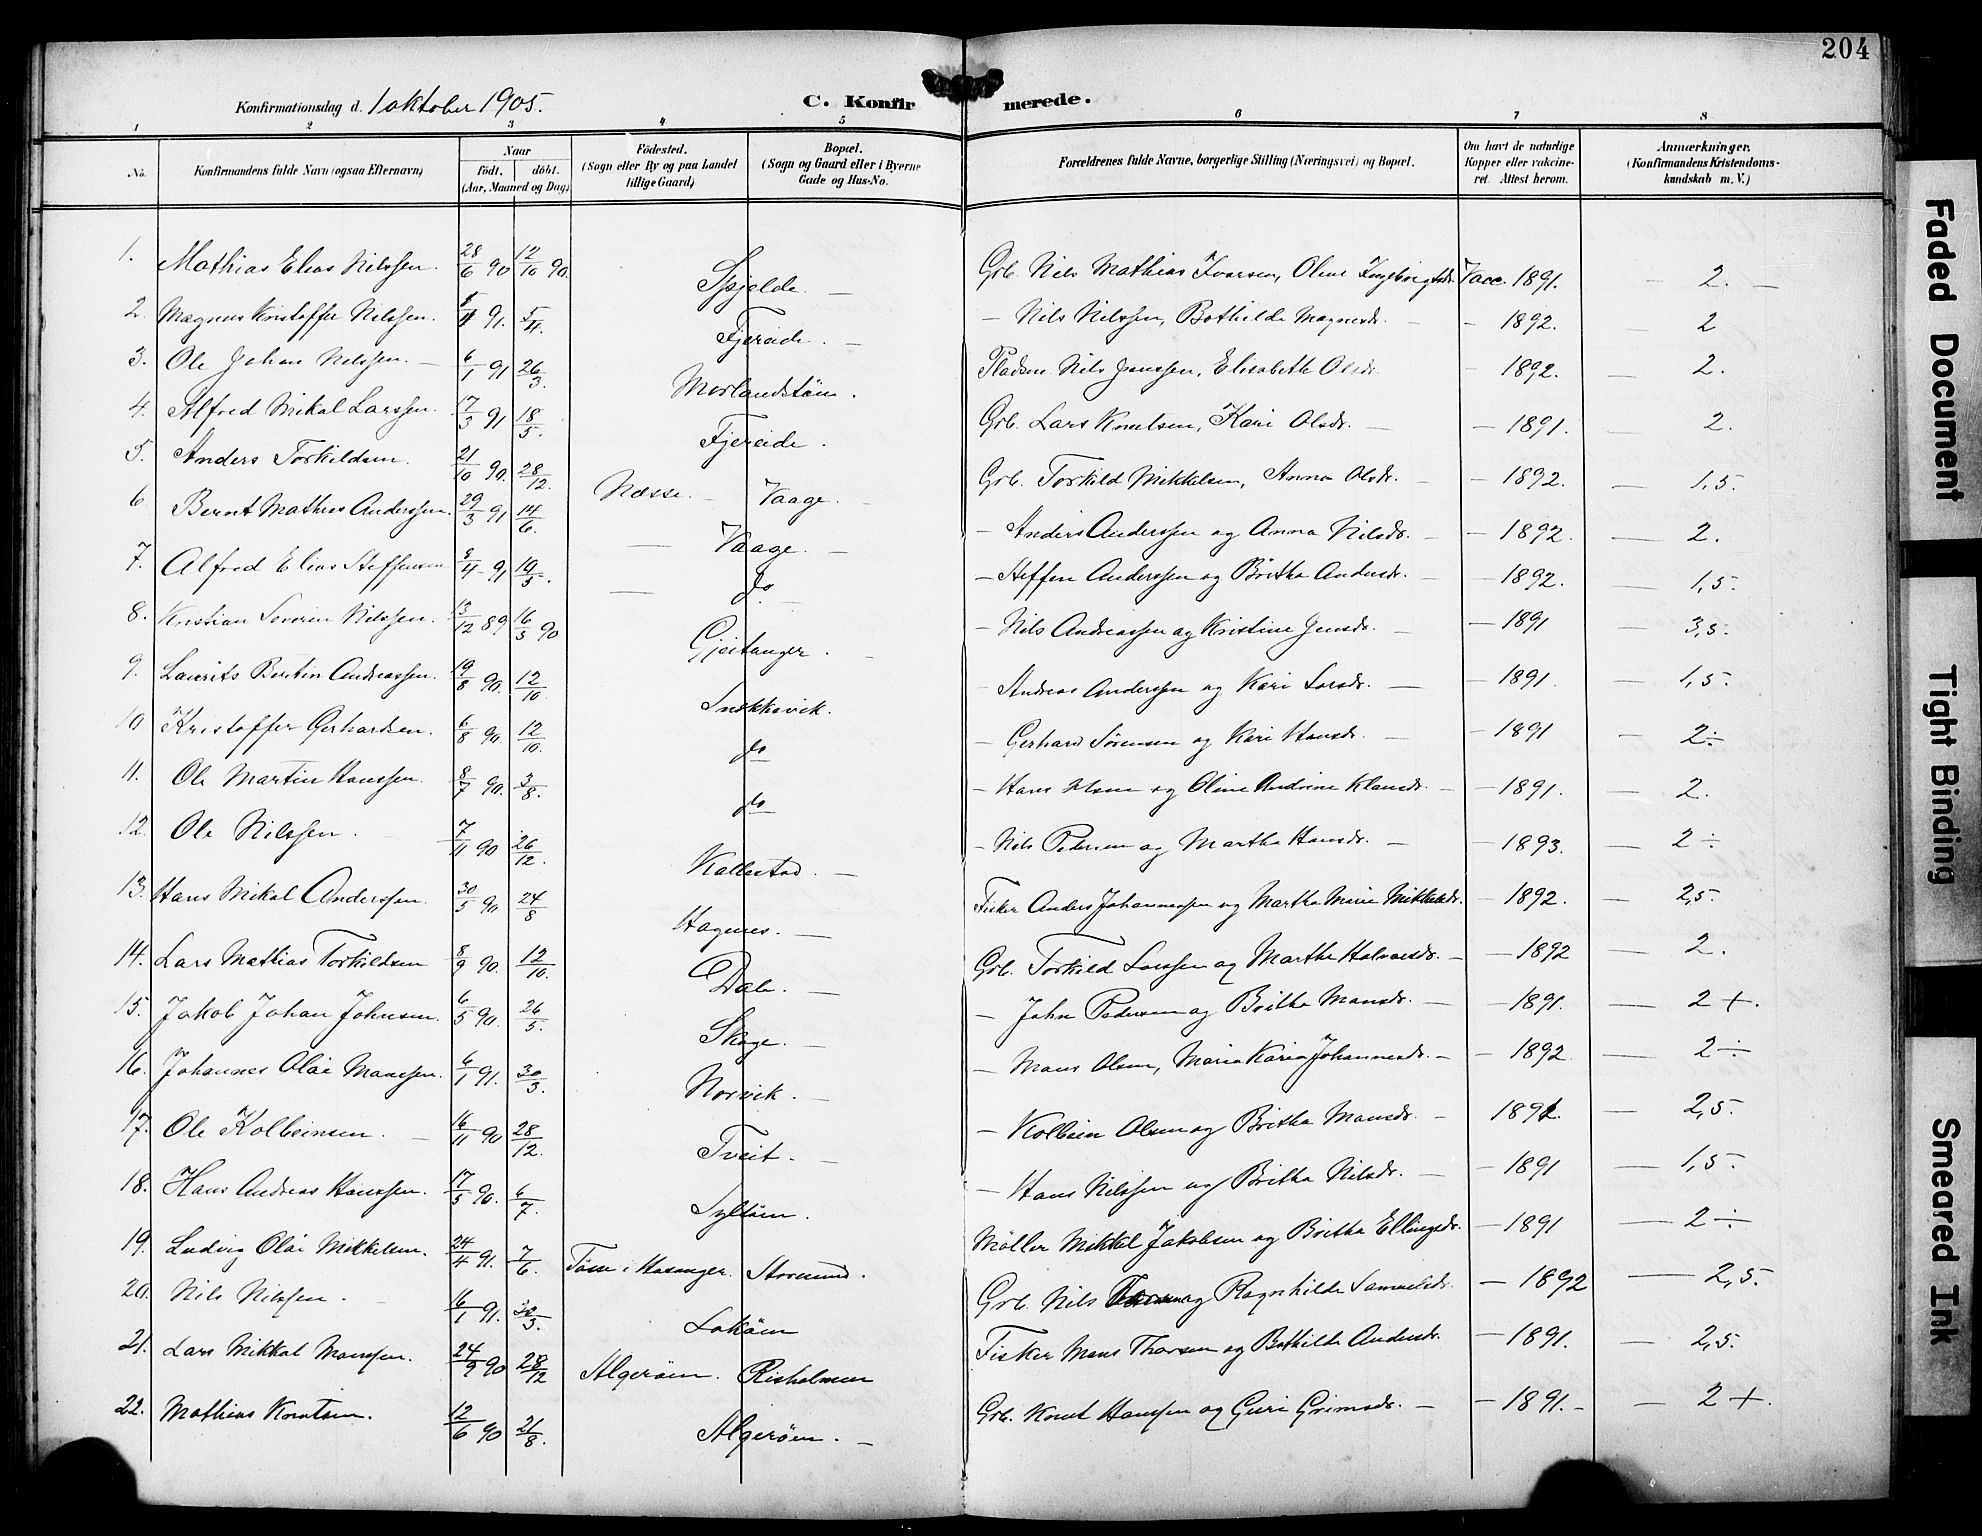 204
Konfirmationsdag d. 1 oktober 1905. C. Konfirmerede.
1 2 3 4 5 6 7 8
No. Konfirmandens fulde Navn (ogsaa Efternavn) Naar födt. döbt. (Aar, Maaned og Dag) Födested. (Sogn eller By og paa Landet tillige Gaard) Bopæl. (Sogn og Gaard eller i Byerne Gade og Hus-No. Forældrenes fulde Navne, borgerlige Stilling (Næringsvei) og Bopæl. Om havt de naturlige Kopper eller vakcineret. Attest herom. Anmærkninger. (Konfirmandens Kristendomskundskab m. V.)
1. Mathias Elias Nilssen. 28/6 90 12/10 90. Spjelde. — Grb. Nils Mathias Ivarsen, Oline Ingebrigtsdr. Vacc. 1891. — 2. —
2. Magnus Kristoffer Nilssen. 91. 5/4. Fjereide. — — Nils Nilssen, Bothilde Magnesdr. — - 1892. — 2
3. Ole Johan Nilssen. — 6/1 91 26/3. Morlandstöen. Pladsm. Nils Janssen, Elisabeth Olsdr. - 1892. — 2.
4. Alfred Mikal Larssen. 17/3 91 18/5. Fjereide. Grb. Lars Knutsen, Kari Olsdr. — - 1891. — 2.
5. Anders Torkildsen. 21/10 90. 28/12. Næsse. — Vaage. — Grb. Torkild Mikkelsen, Anna Olsdr. — - 1892. — 1,5.
6. Bernt Mathias Anderssen. 29/3 91 14/6. — Vaage. — — Anders Anderssen og Anna Nilsdr. — 1892. — 2.
7. Alfred Elias Steffensen 8/4 - 91 10/5. — do — — Steffen Anderssen og Britha Andersdr. — 1892. — 1,5.
8. Kristian Severin Nilssen. 13/12 89 16/3 90 Gjeitanger. — — Nils Andreassen og Kristine Jensdr. — — 1891 — 3,5.
9. Laurits Bertin Andreassen. 19/8 90. 12/10. Snekkevik. — Andreas Anderssen og Kari Larsdr. — — 1891. — 1,5.
10 Kristoffer Gerhardsen. 6/8 90. 12/10. do — Gerhard Sörensen og Kari Hansdr. — — 1891 — 2÷
11. Ole Martin Hanssen. 8/7 90. 3/8. do — Hans og Oline Andrine Klausdr. — — 1891. — 2.
12. Ole Nilssen. 7/11 90 26/12. Kallestad. — — Nils Pedersen og Martha Hansdr. — — 1893. — 2 ÷
13. Hans Mikal Anderssen. 30/5 90 24/8 Hagenes. — Fisker Anders Johannessen og Martha Marie Mikkelsdr. — 1892. — 2,5.
14. Lars Mathias Torkildsen 8/9 90. 12/10. Dale. — Grb. Torkild Larssen og Marthe Halvorsdr. — — 1892 — 2.
15. Jakob Johan Johnsen. 6/5 90. 26/5. Skage. — — John Pedersen og Britha Mansdr. — — 1891. — 2 +.
16. Johannes Olai Manssen. 6/1 91. 30/3. Norvik. — — Mans Olsen, Maria Karia Johannesdr. — — 1892 — 2 ÷
17. Ole Kolbeinsen. — 16/11 90 28/12. Tveit. — — Kolbein Olsen og Britha Mansdr. — 1892. — 2,5.
18. Hans Andreas Hanssen. 17/5 90. 6/7. Syltöen. — Hans Nilssen og Britha Nilsdr. — — 1891 — 1,5.
19. Ludvig Olai Mikkelsen. 24/4 91. 7/6. Tösse i Hosanger. Storesund. Möller Mikkel Jakobsen og Britha Ellingsdr. — 1891 — 2 ÷
20. Nils Nilssen. — 16/1 91. 30/3. Loköen Grb. Nils og Ragnhilde Samuelsdr. — 1892 — 2,5.
21. Lars Mikkal Manssen. 24/9 90 28/12 Algeröen. Risholmen Fisker Mans Thorsen og Bothilde Andersdr. — 1891. — 2,5.
22. Mathias Knutsen. 12/6 90 21/8. Algeröen. — Grb. Knut Hanssen og Guri Grimsdr. — — 1891. - — 2 +.
Faded Document
Tight Binding
Smeared Ink